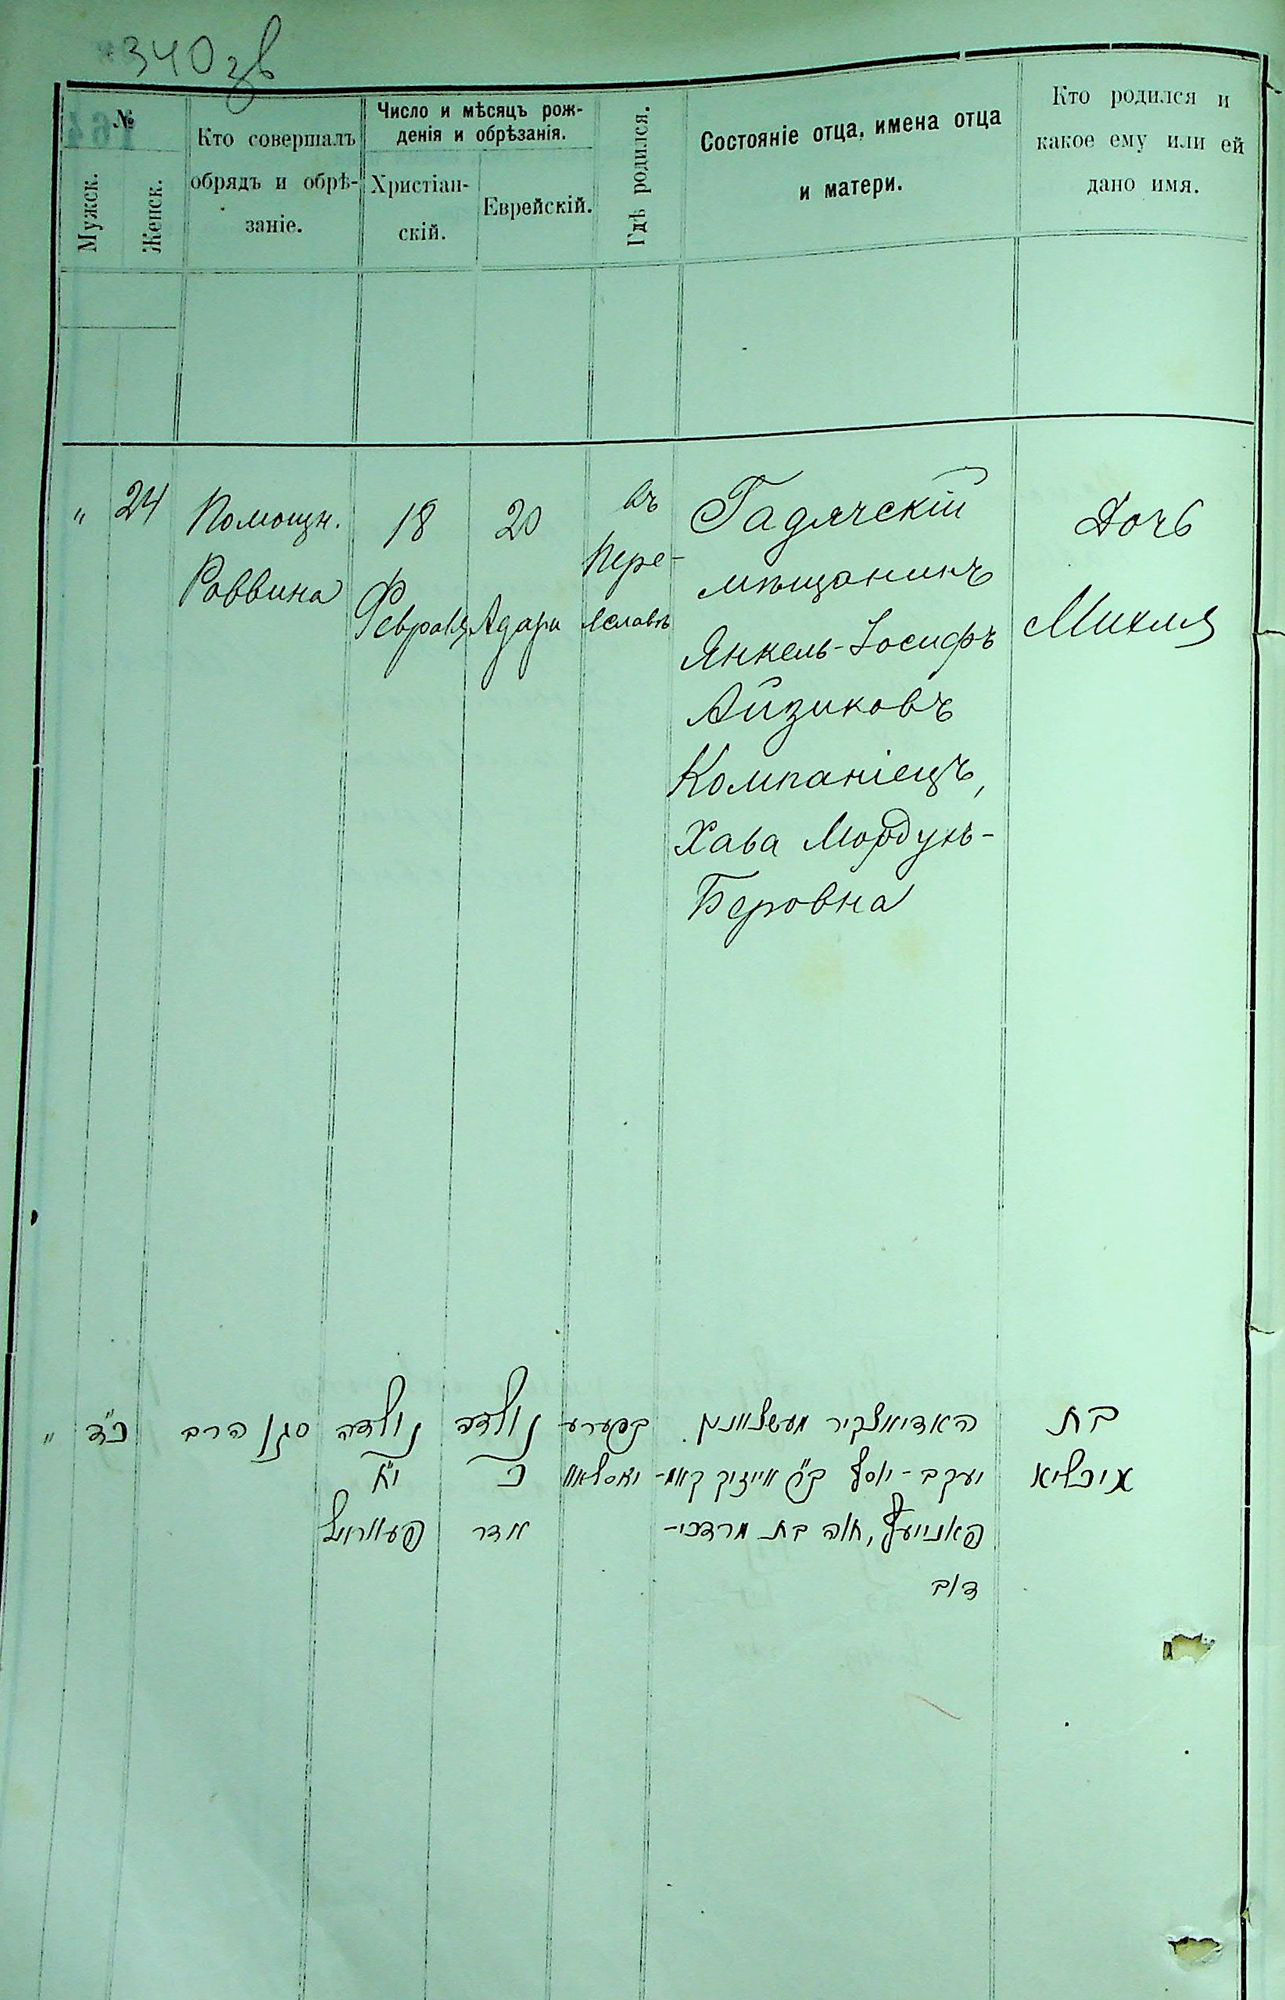 340 зв
№
Мужск.
Женск.
Кто совершалъ
обрядъ и обрѣ-
заніе.
Число и мѣсяцъ рож-
денія и обрѣзанія.
Христіан-
скій.
Еврейскій.
Гдѣ родился.
Состояніе отца, имена отца
и матери.
Кто родился и
какое ему или ей
дано имя.
"
24
Помощн.
Раввина
18
Февраля
20
Адара
въ
Пере-
яславѣ
Гадячскій
мѣщанинъ
Янкель-Іосифъ
Айзиковъ
Компаніецъ,
Хава Мордухъ-
Беровна
Дочь
Михля
"
כ"ד
סגן הרב
נולדה
י"ח
פעװראל
נולדה
כ'
אדר
בפערע
יאסלאװ
האדיאצקיר מעשצאנין
יעקב-יוסף ב"ר אייזיק קאמ-
פאנייעץ, חוה בת מרדכי-
דוב
בת
מיכליא